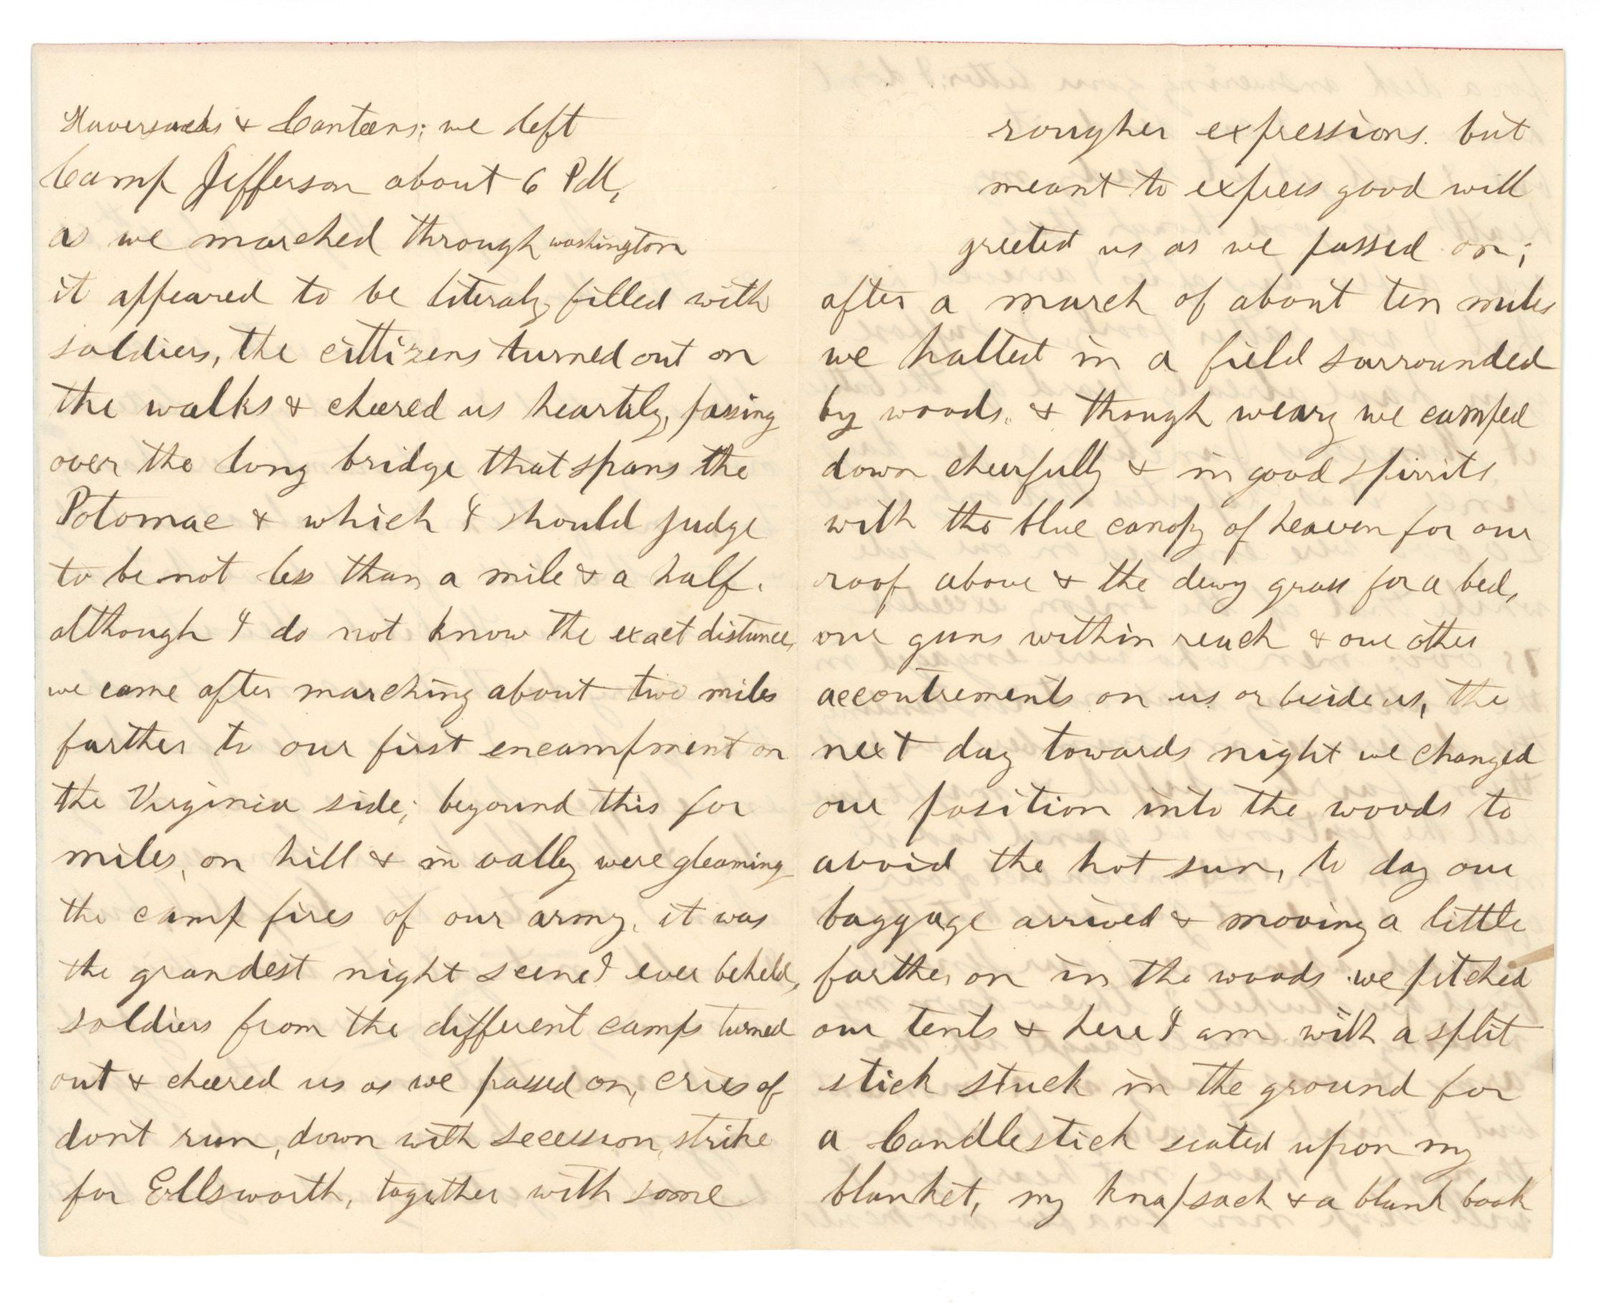 Haversacks & Canteens; we left
Camp Jefferson about 6 P.M,
as we marched through washington
it appeared to be literaly filled with
soldiers, the cittizens turned out on
the walks & cheered us heartily, passing
over the long bridge that spans the
Potomac & which I should judge
to be not less than a mile & a half.
although I do not know the exact distance,
we came after marching about two miles
farther to our first encampment on
the Virginia side; beyound this for
miles, on hill & in vally were gleaming
the camp fires of our army, it was
the grandest night scene I ever beheld,
soldiers from the different camps turned
out & cheered us as we passed on, cries of
dont run, down with secession, strike
for Ellsworth, together with some
rougher expressions. but
meant to express good will
greeted us as we passed on;
after a march of about ten miles
we halted in a field surrounded
by woods. & though weary we camped
down cheerfully & in good spirrits
with the blue canopy of heaven for our
roof above & the dewy grass for a bed,
our guns within reach & our other
accoutrements on us or beside us, the
next day towards night we changed
our position into the woods to
avoid the hot sun, to day our
baggage arrived & moving a little
farther on in the woods we pitched
our tents & here I am with a split
stick stuck in the ground for
a Candlestick seated upon my
blanket, my knapsack & a blank book